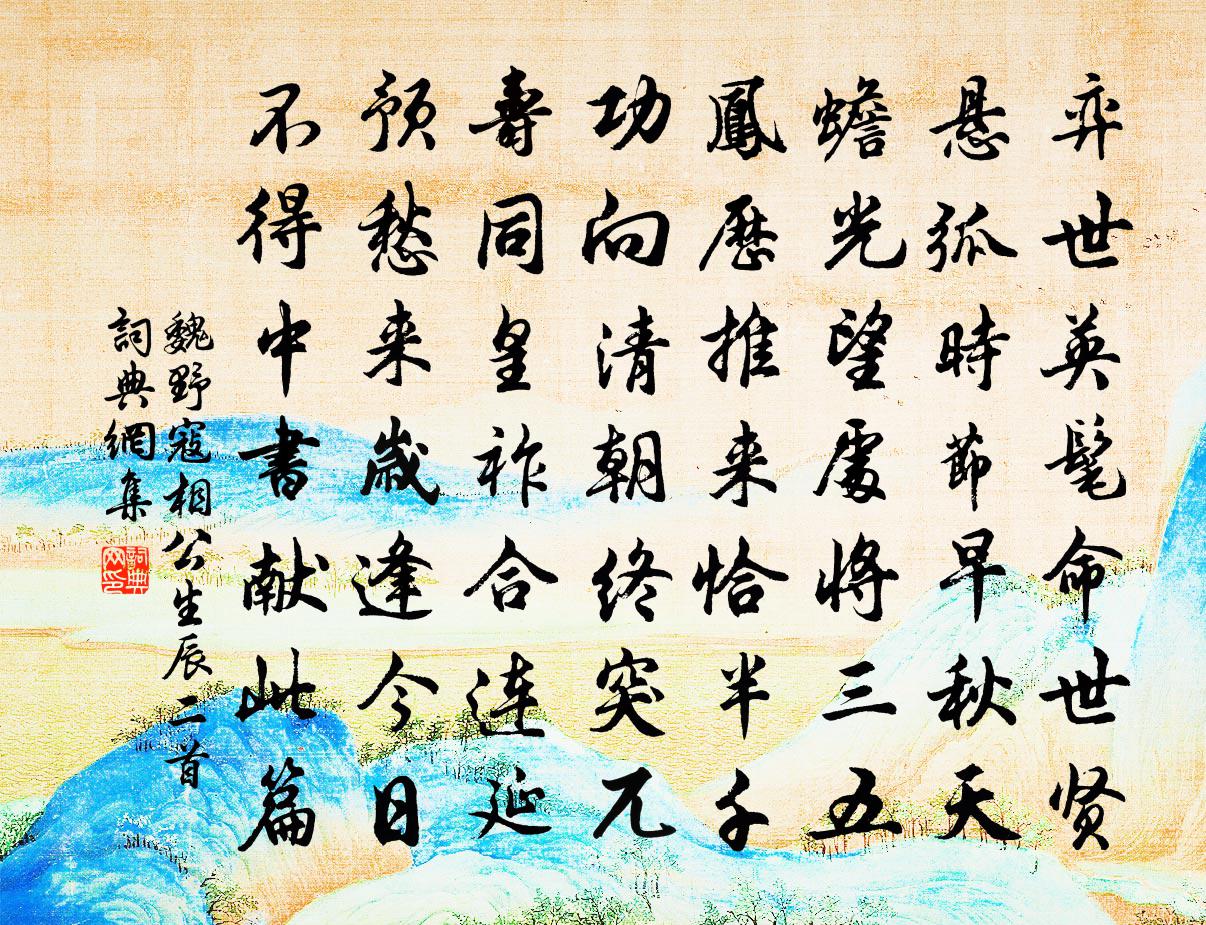 弈世英髦命世贤
悬弧時節早秋天
蟾光望處将三五
鳳歷推来恰半千
功向清朝终突兀
壽同皇祚合连延
预愁来歲逢今日
不得中書献此篇
魏野寇相公生辰二首
詞典網集
詞典网印